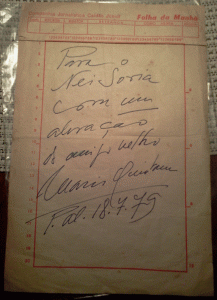 Folha da Manhã
Para o
Nei Soria
com um
abração
do amigo velho
Mario Quintana
P. Al. 18.4.79